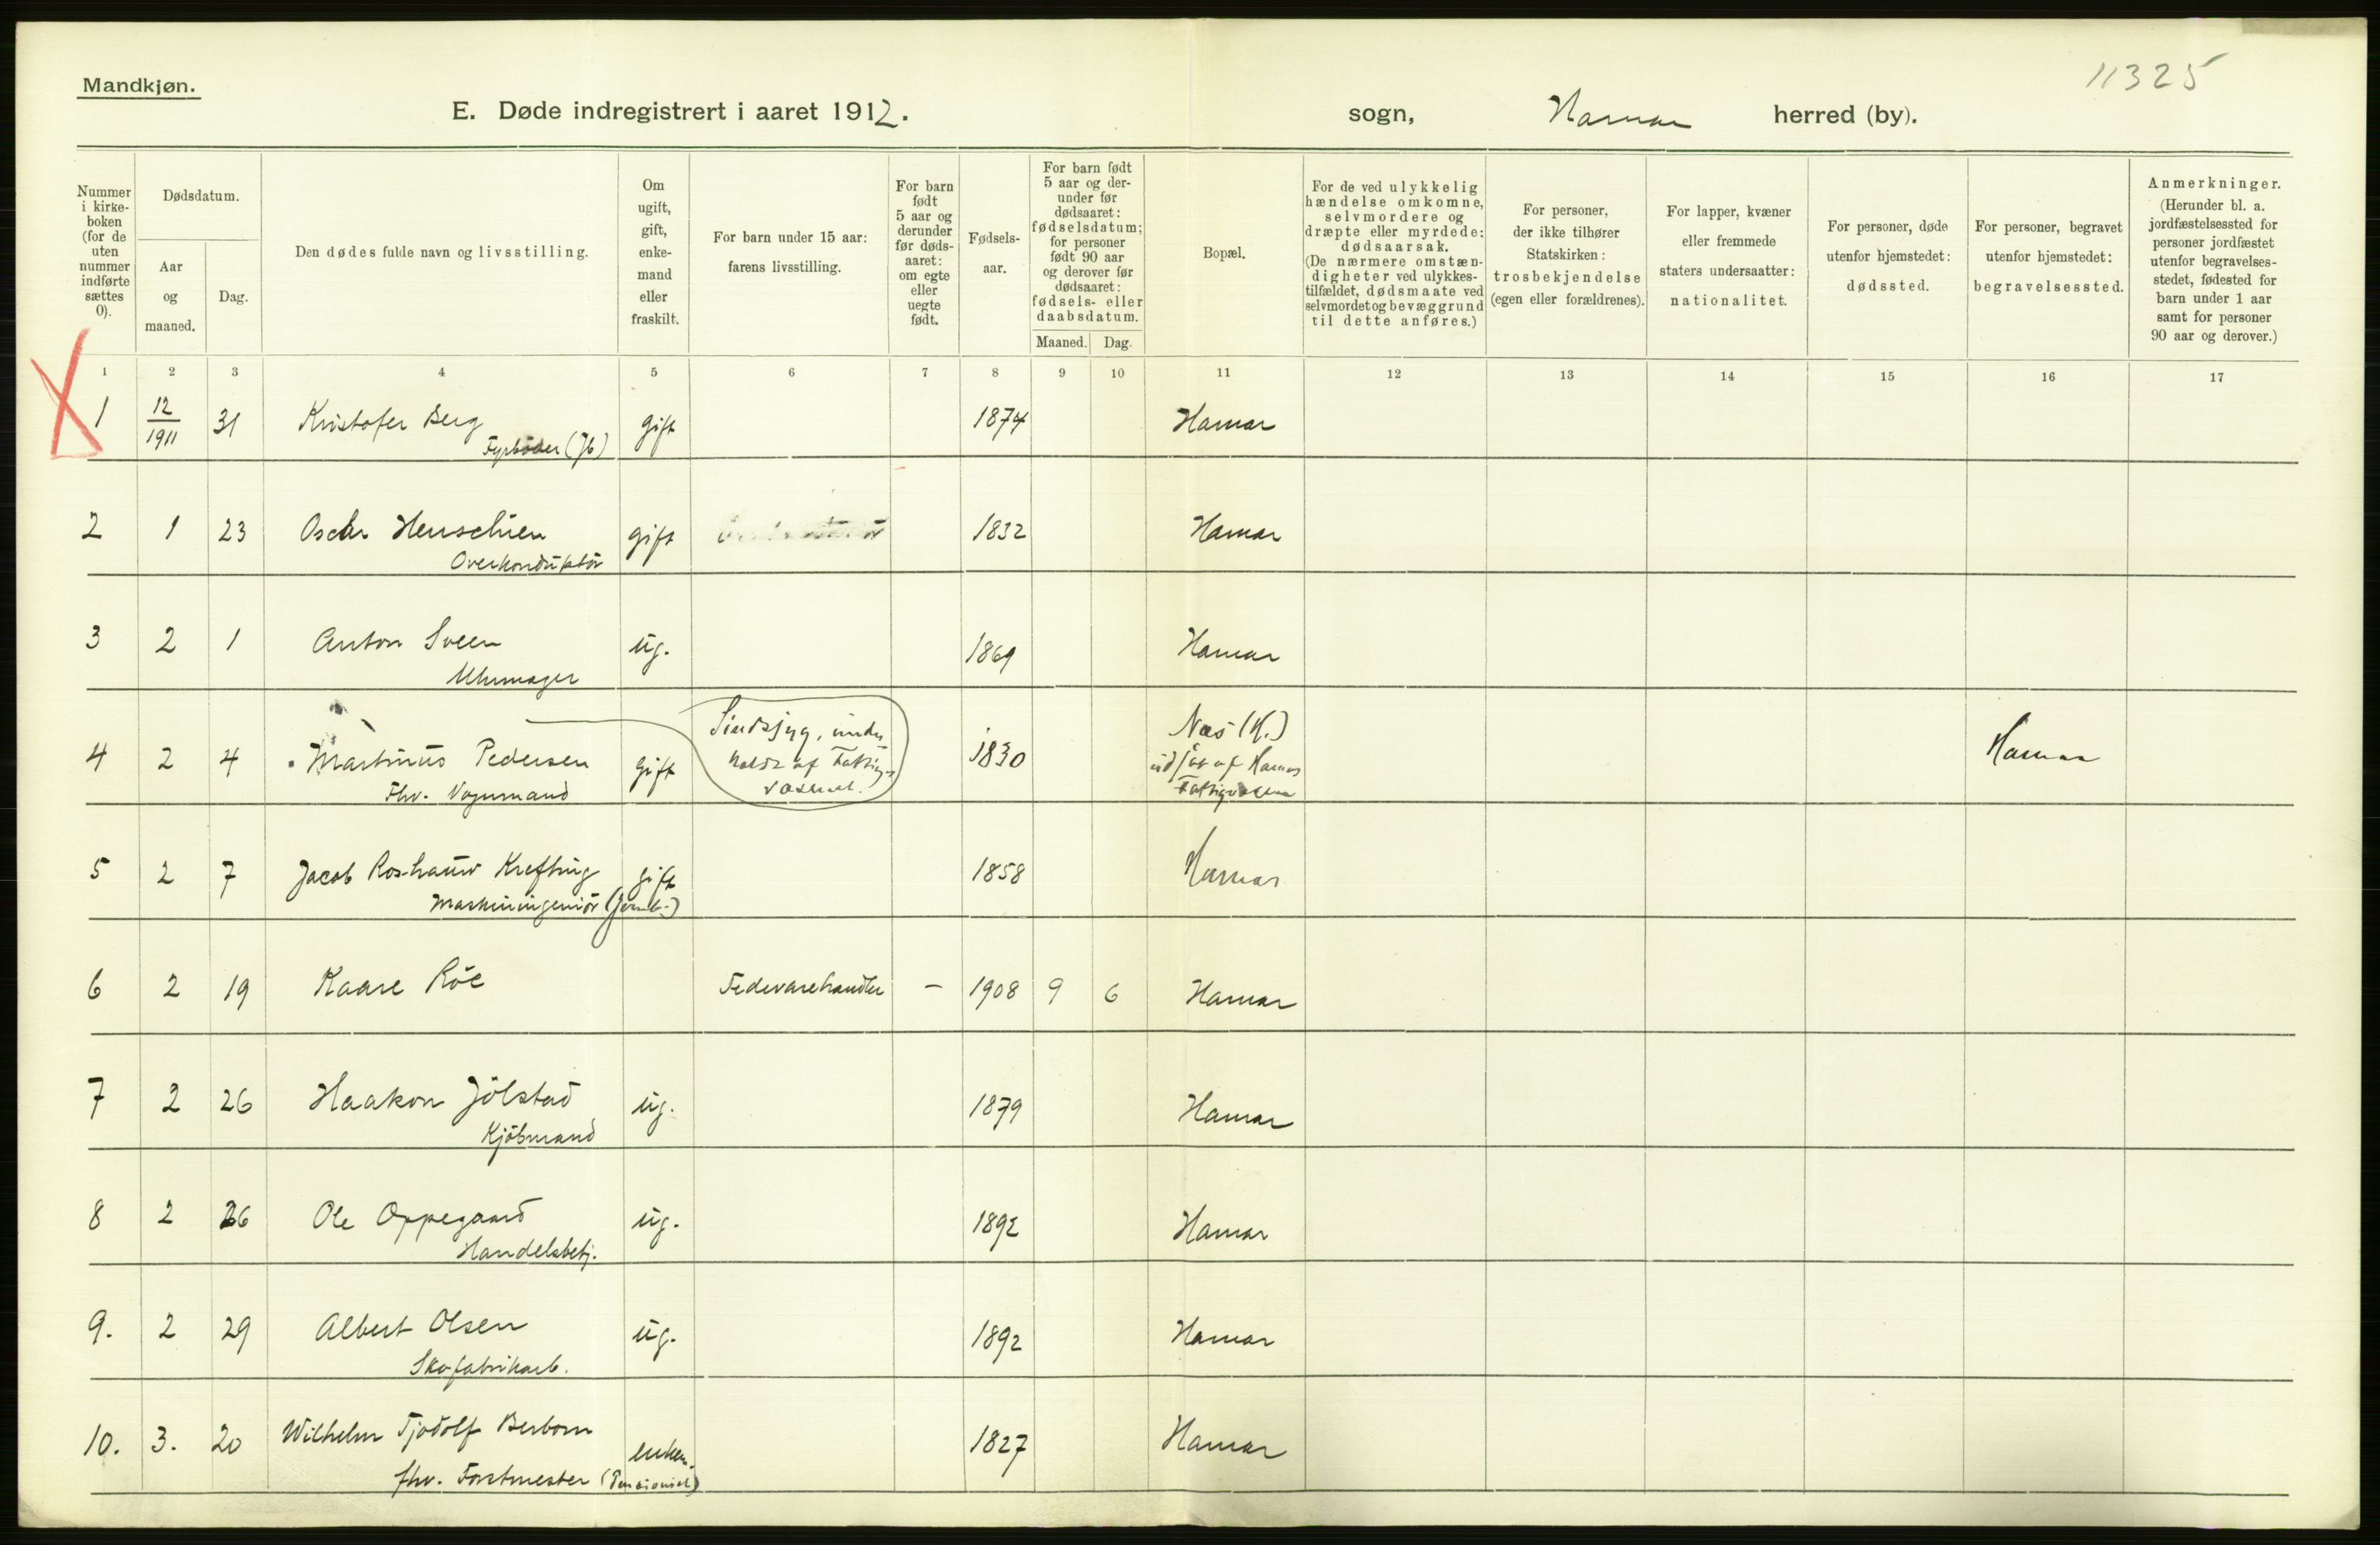 11325
Mandkjøn.
E. Døde indregistrert i aaret 1912. sogn, Hamar herred (by).
Nummer i kirke- boken (for de uten nummer indførte sættes 0).
Dødsdatum.
Aar og maaned.
Dag.
Den dødes fulde navn og livsstilling.
Om ugift, gift, enke- mand eller fraskilt.
For barn under 15 aar: farens livsstilling.
For barn født 5 aar og derunder før døds- aaret: om egte eller uegte født.
Fødsels- aar.
For barn født 5 aar og der- under før dødsaaret: fødselsdatum; for personer født 90 aar og derover før dødsaaret: fødsels- eller daabsdatum.
Maaned. Dag.
Bopæl.
For de ved ulykkelig hændelse omkomne, selvmordere og dræpte eller myrdede: dødsaarsak. (De nærmere omstæn- digheter ved ulykkes- tilfældet, dødsmaate ved selvmordet og bevæggrund til dette anføres.)
For personer, der ikke tilhører Statskirken: trosbekjendelse (egen eller forældrenes).
For lapper, kvæner eller fremmede staters undersaatter: nationalitet.
For personer, døde utenfor hjemstedet: dødssted.
For personer, begravet utenfor hjemstedet: begravelsessted.
Anmerkninger. (Herunder bl. a. jordfæstelsessted for personer jordfæstet utenfor begravelses- stedet, fødested for barn under 1 aar samt for personer 90 aar og derover.)
1 2 3 4 5 6 7 8 9 10 11 12 13 14 15 16 17
1 12/1911 31 Kristofer Berg gift 1874 Hamar
Fyrbøder (Jb)
2 1 23 Oscar Henschien gift 1832 Hamar
Overkonduktör
3 2 1 Anton Sveen ug. 1869 Hamar
Uhrmager
4 2 4 Martinus Pedersen gift Sindssyg, under 1830 Næs (H.) Hamar
Fhv. Vognmand holdt af Fattig- udsat af Hamar
væsenet. Fattigvæsen
5 2 7 Jacob Roshauw Krefting gift 1858 Hamar
Maskiningeniör (Jernb.)
6 2 19 Kaare Röe Fedevarehandler - 1908 9 6 Hamar
7 2 26 Haakon Jölstad ug. 1879 Hamar
Kjöbmand
8 2 26 Ole Oppegaard ug. 1892 Hamar
Handelsbetj.
9. 2 29 Albert Olsen ug. 1892 Hamar
Skofabrikarb.
10. 3. 20 Wilhelm Tjodolf Berbom enkem. 1827 Hamar
fhv. Forstmester (Pensionist)